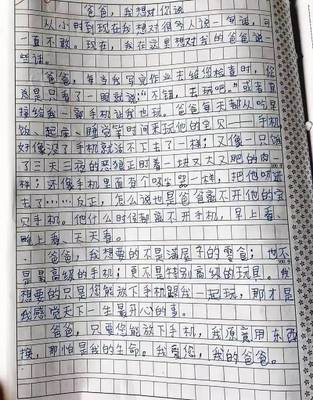 爸爸，我想对你说
从小时到现在我想对很多人说一句话，可一
直不敢。现在，我在这里想对我的爸爸说
些话。
爸爸，每当我写完作业去给您检查时，您
总是只看了一眼就说：“不错，去玩吧。”或者直
接给我一部手机让我也玩。爸爸每天都从吃早
饭、起床、睡觉等时间来玩他的宝贝——手机
好像没了手机就活不下去了一样；又像一只饿
了三天三夜的恶狼正盯着一块又大又肥的肉一
样；还像手机里面有个吸尘器一样，把他吸进
去了……反正，怎么说也是爸爸离不开他的宝
贝手机。他什么时候都离不开手机，早上看、
晚上看、天天看。
爸爸，我想要的不是满屋子的零食；也不
是最高级的手机；更不是特别高级的玩具。我
想要的只是您能放下手机跟我一起玩，那才是
我感觉天下一生最开心的事。
爸爸，只要您能放下手机，我愿意用东西
换，那怕是我的生命。我爱您，我的爸爸。